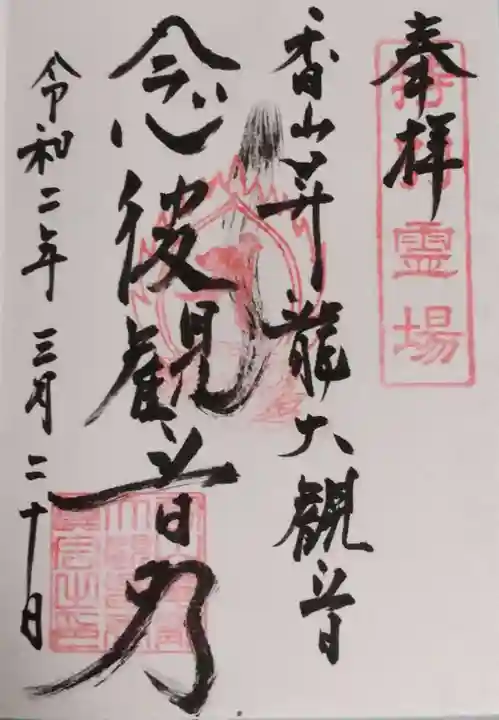 奉拝
霊場
香山昇龍大観音
念彼観音力
令和二年 三月二十日